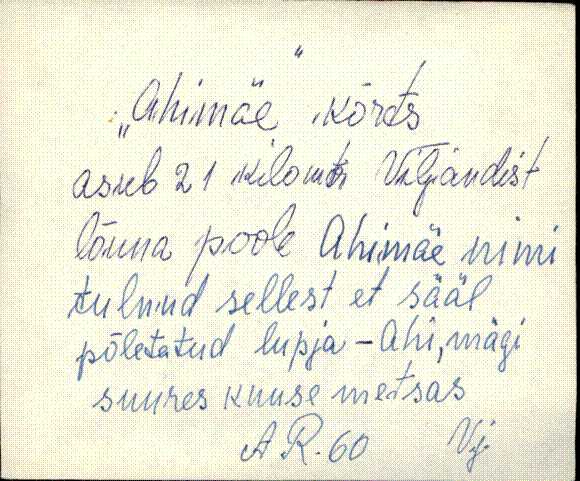 „Ahimäe" kõrts
asub 21 kilomtr Viljandist
lõuna poole Ahimäe nimi
tulnud sellest et sääl
põletatud lupja – Ahi, mägi
suures kuuse metsas
A R. 60 Vj.